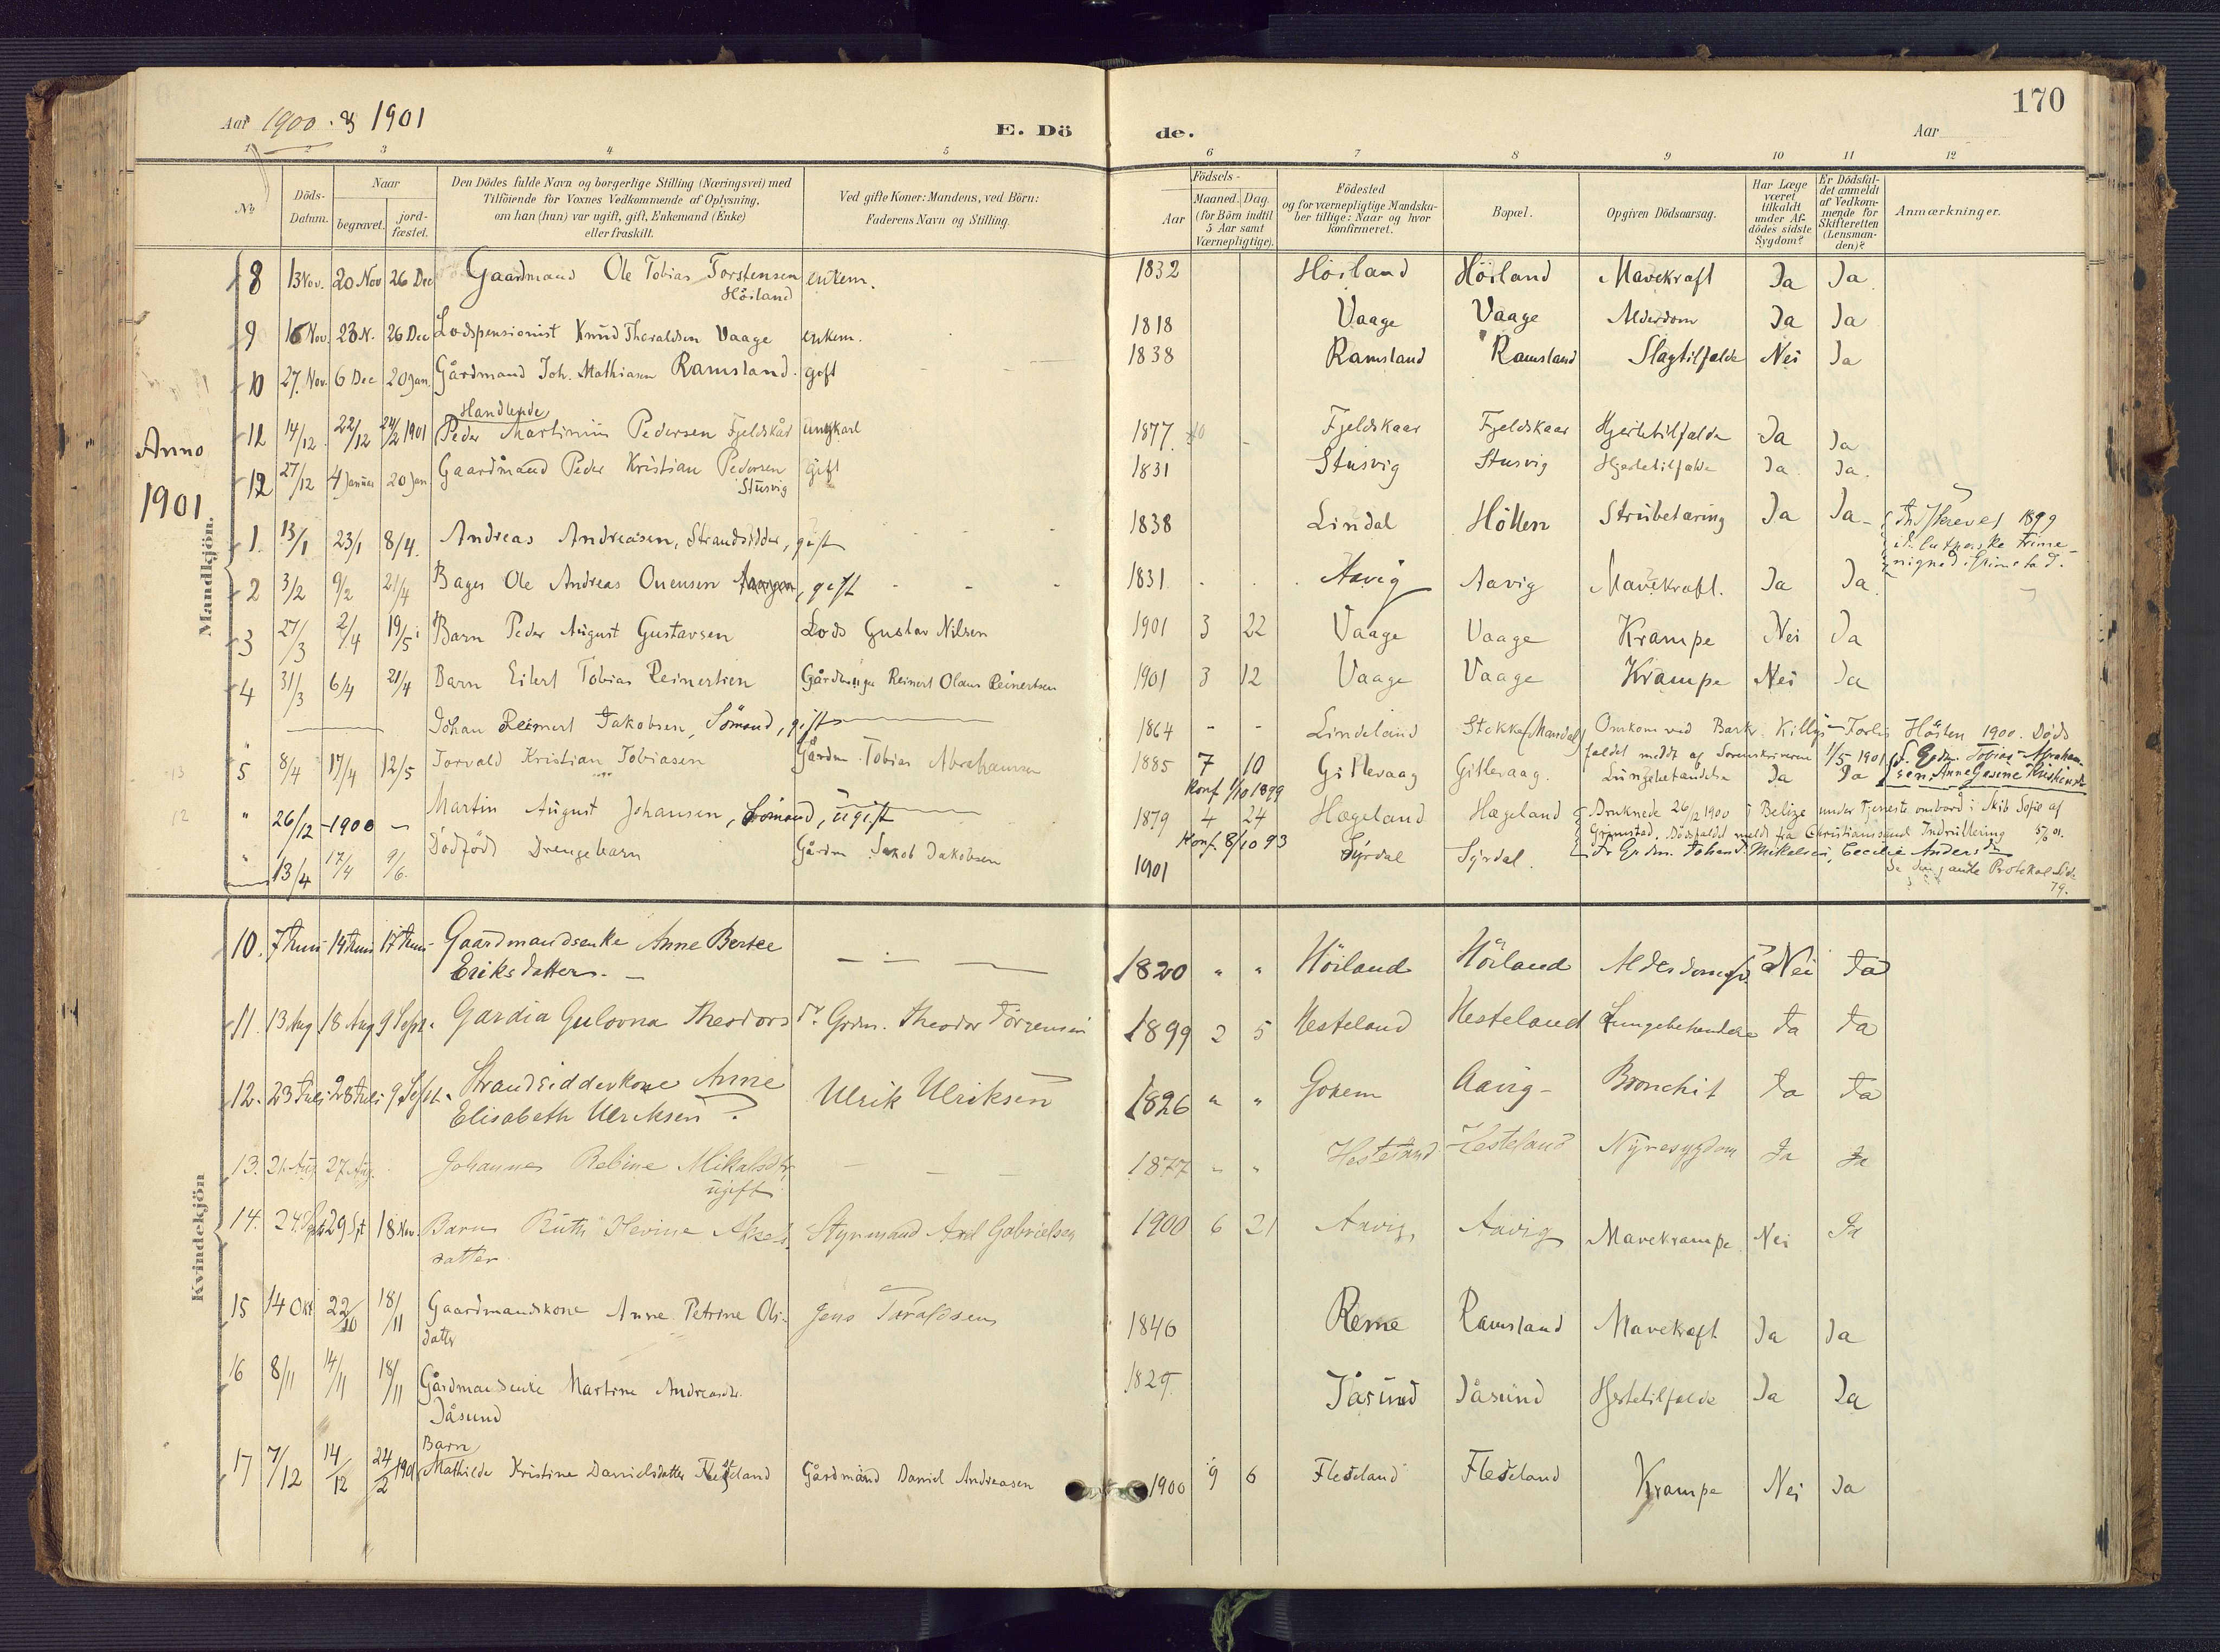 Aar 1900 . & 1901
E. Dö
de.
Aar
170
1 2 3 4 5 6 7 8 9 10 11 12
No
Döds-
Datum.
Naar
begravet.
jord-
fæstet.
Den Dödes fulde Navn og borgerlige Stilling (Næringsvei) med
Tilföiende for Voxnes Vedkommende af Oplysning,
om han (hun) var ugift, gift, Enkemand (Enke)
eller fraskilt.
Ved gifte Koner: Mandens, ved Börn:
Faderens Navn og Stilling.
Födsels-
Aar
Maaned. Dag.
(for Börn indtil
5 Aar samt
Værnepligtige).
Födested
og for værnepligtige Mandska-
ber tillige: Naar og hvor
konfirmeret.
Bopæl.
Opgiven Dödsaarsag.
Har Læge
været
tilkaldt
under Af-
dödes sidste
Sygdom?
Er Dödsfal-
det anmeldt
af Vedkom-
mende for
Skifteretten
(Lensman-
den)?
Anmærkninger.
Mandkjön.
8 13 Nov. 20 Nov 26 Dec Gaardmand Ole Tobias Torstensen enkem. 1832 Höiland Höiland Mavekræft Ja Ja
Höiland
9 16 Nov. 23 N. 26 Dec Lodspensionist Knud Theraldsen Vaage enkem. 1818 Vaage Vaage Alderdom Ja Ja
10 27. Nov. 6 Dec 20 Jan. Gårdmand Joh. Mathiasen Ramsland. gift 1838 Ramsland Ramsland Slagtilfælde Nei Ja
Handlende
11 14/12 22/12 24/2 1901 Peder Martinius Pedersen Fjeldskår ungkarl 1877. Fjeldskaar Fjeldskaar Hjertetilfælde Ja Ja
Anno
1901
12 27/12 4 Januar 20 Jan Gaardmand Peder Kristian Pedersen gift 1831 Stusvig Stusvig Hjertetilfælde Ja. Ja.
Stusvig
1. 13/1 23/1 8/4. Andreas Andreasen, Strandsidder, gift 1838 Lindal Hölten Strubetæring Ja Ja
1899
2 3/2 9/2 21/4 Bager Ole Andreas Onensen, gift 1831 Aavig Aavig Mavekræft. Ja Ja.
3 27/3 2/4 19/5 Barn Peder August Gustavsen Lods Gustav Nilsen 1901 3 22 Vaage Vaage Krampe Nei Ja
4 31/3 6/4 21/4 Barn Eilert Tobias Reinertsen Reinert Olaus Reinertsen 1901 3 12 Vaage Vaage Krampe Nei Ja
" Johan Reinert Jakobsen, Sömand, gift 1864 - - Lindeland Stokke (Mandal) Omkom ved Bark Forlis Hösten 1900. Döds
faldet meldt af Sorenskriveren 1/5 1901
5 8/4 17/4 12/5 Torvald Kristian Tobiasen Gårdm. Tobias Abrahamsen 1885 7 10 Gitlevaag Gitlevaag. Lungebetændelse Ja Ja
Konf. 1/10 1899
" 26/12 - 1900 - Martin August Johansen, Sömand, ugift 1879 4 24 Hægeland Hægeland Druknede 26/12 1900 i Belize under Tjeneste ombord i Skib Sofie af
Konf. 8/10 93 Grimstad. Dödsfaldet meldt fra Christianssand Indrullering
" 13/4 17/4 9/6. Dödfödt Drengebarn Gårdm Jakob Jakobsen 1901 Syrdal Syrdal.
Protokol Side
79.
Kvindekjön
10. 7 Juni 14 Juni 17 Juni Gaardmandsenke Anne Bertee 1820 " " Höiland Höiland Alderdoms Nei Ja
Eriksdatter. -
11. 13 Aug 18 Aug 9 Sept. Gardia Gulovna Theodors Theodor Törresen 1899 2 5 Hesteland Hesteland Lungebetændelse Ja Ja
12. 23 Juli 28 Juli 9 Sept. Strandsidderkone Anne Ulrik Ulriksen 1826 " " Gokem Aavig Bronchit Ja Ja
Elisabeth Ulriksen
13. 21. Aug. 27 Aug. Johanne Rebine Mikalsdtr 1877 " " Hesteland Hesteland Nyresygdom Ja Ja
ugift
14. 24. Sept 29 Spt 18 Nov. Barn Ruth Hevine Aksels Styrmand Axel Gabrielsen 1900 6 21 Aavig, Aavig Mavekrampe Nei Ja
datter
15 14 Okt 22/10 18/11 Gaardmandskone Anne Petrine Ols- Jens Taraldsen 1846 Reme Ramsland Mavekræft Ja Ja
datter
16 8/11 14/11 18/11 Gårdmandsenke Martine Andreasdtr. 1829. Jåsund Jåsund Hjertetilfælde Ja Ja
Jåsund
Barn
17 7/12 14/12 24/2 1901 Mathilde Kristine Danielsdatter Gårdmand Daniel Andreasen 1900 9 6 Fledeland Fledeland Krampe Nei Ja